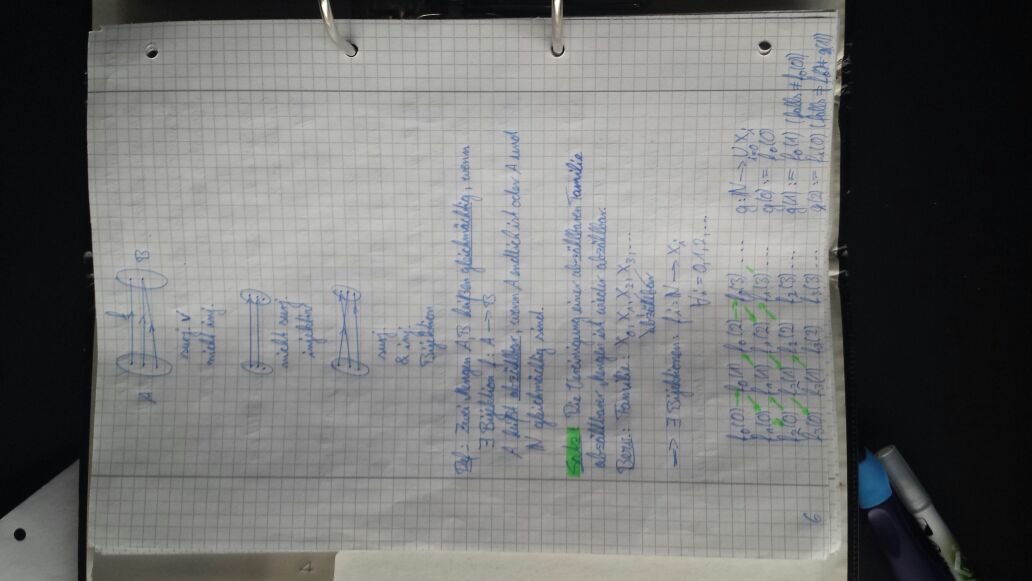 A f B
surj ✓
nicht inj.
nicht surj
injektiv
surj
& inj
Bijektion
Def: Zwei Mengen A, B heißen gleichmächtig, wenn
∃ Bijektion f: A → B
A heißt abzählbar, wenn A endlich ist oder A und
N gleichmächtig sind.
Satz: Die Vereinigung einer abzählbaren Familie
abzählbarer Mengen ist wieder abzählbar.
Bew.: Familie: X₀, X₁, X₂, X₃, ...
abzählbar
→ ∃ Bijektionen: fᵢ: N → Xᵢ
∀i = 0,1,2,...
f₀(0) → f₀(1) f₀(2) → f₀(3) .... g: N → ∪ Xᵢ i=0
f₁(0) f₁(1) f₁(2) f₁(3) .... g(0) := f₀(0)
f₂(0) f₂(1) f₂(2) f₂(3) .... g(1) := f₀(1) (falls ≠ f₀(0))
f₃(0) f₃(1) f₃(2) f₃(3) .... g(2) := f₁(0) (falls ≠ g(1))
6
4